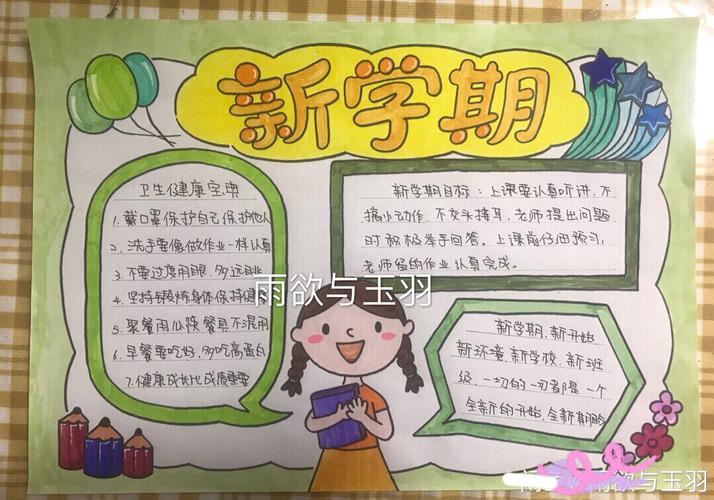 新学期
卫生健康宝典
1.戴口罩保护自己保护他人
2.洗手要像做作业一样认真
3.不要过度用眼,多远
4.坚持锻炼身体保持健
5.聚餐用公筷餐具不混用
6.早餐要吃好,多吃高蛋白
7.健康成长比成绩重要
新学期目标:上课要认真听讲,不
搞小动作.不交头接耳,老师提出问题
时积极举手回答。上课前仔细预习,
老师留的作业认真完成。
雨欲与玉羽
新学期,新开始
新环境,新学校,新班
级,一切的一切都是一个
全新的开始,全新期盼
雨欲与玉羽